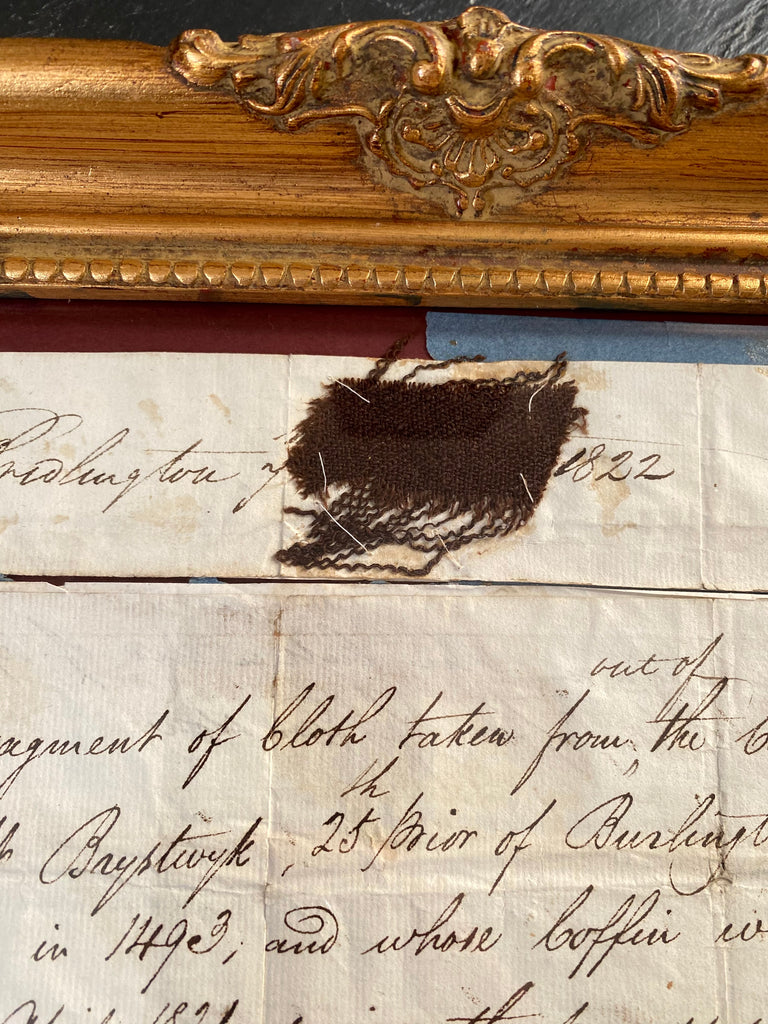 Bridlington 1822
out of
ragment of Cloth taken from the C
Brystwyk, 25th Prior of Burlingt
in 1493, and whose Coffin w
1821 the